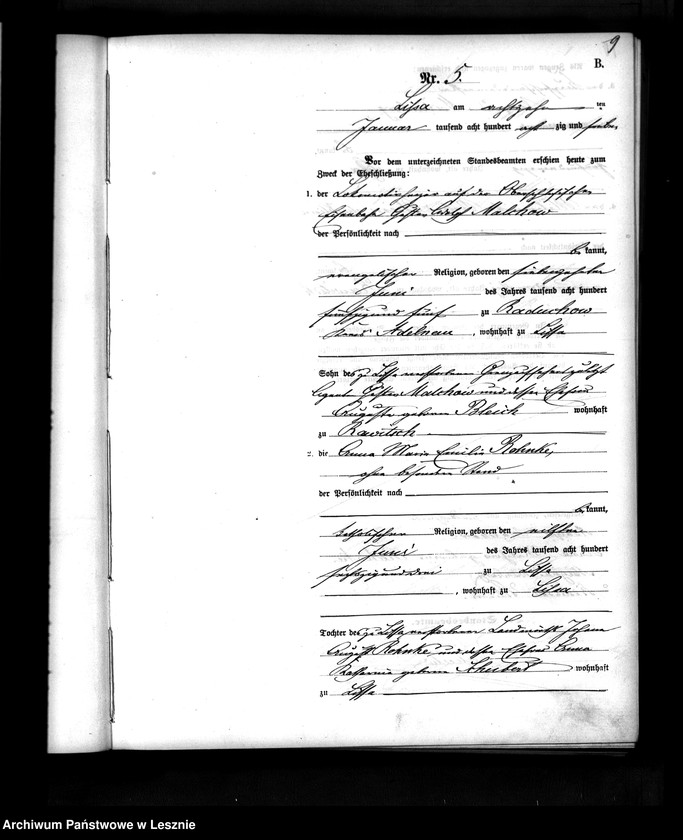 9
B.
Nr. 5.
Lissa am achtzehn ten
Januar tausend acht hundert acht zig und sieben,
Vor dem unterzeichneten Standesbeamten erschien heute zum
Zweck der Eheschließung:
1. der Lokomotivheizer auf der Oberschlesischen
Eisenbahn Malchow
der Persönlichkeit nach
be kannt,
evangelischer Religion, geboren den siebenzehnten
Juni des Jahres tausend acht hundert
fünfzig und fünf zu Raduchow
Kreis Adelnau, wohnhaft zu Lissa
Sohn des zu Lissa verstorbenen
Malchow und dessen Ehefrau
Auguste geborene Bleich wohnhaft
zu Rawitsch
2. die Anna Maria Emilie Rohnke,
ohne besonderen Stand
der Persönlichkeit nach
be kannt,
katholischer Religion, geboren den eilften
Juni des Jahres tausend acht hundert
sechzig und drei zu Lissa
, wohnhaft zu Lissa
Tochter des zu Lissa verstorbenen Johann
August Rohnke und dessen Ehefrau Anna
Katharina geborene wohnhaft
zu Lissa
Archiwum Państwowe w Lesznie